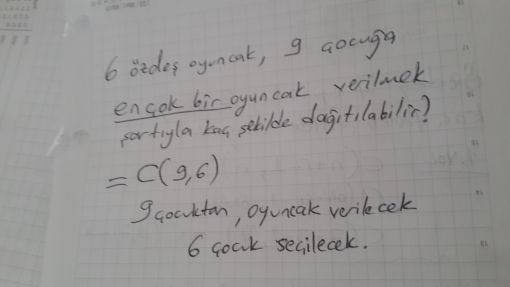 6 özdeş oyuncak, 9 çocuğa
en çok bir oyuncak verilmek
şartıyla kaç şekilde dağıtılabilir?
= C(9,6)
9 çocuktan, oyuncak verilecek
6 çocuk seçilecek.